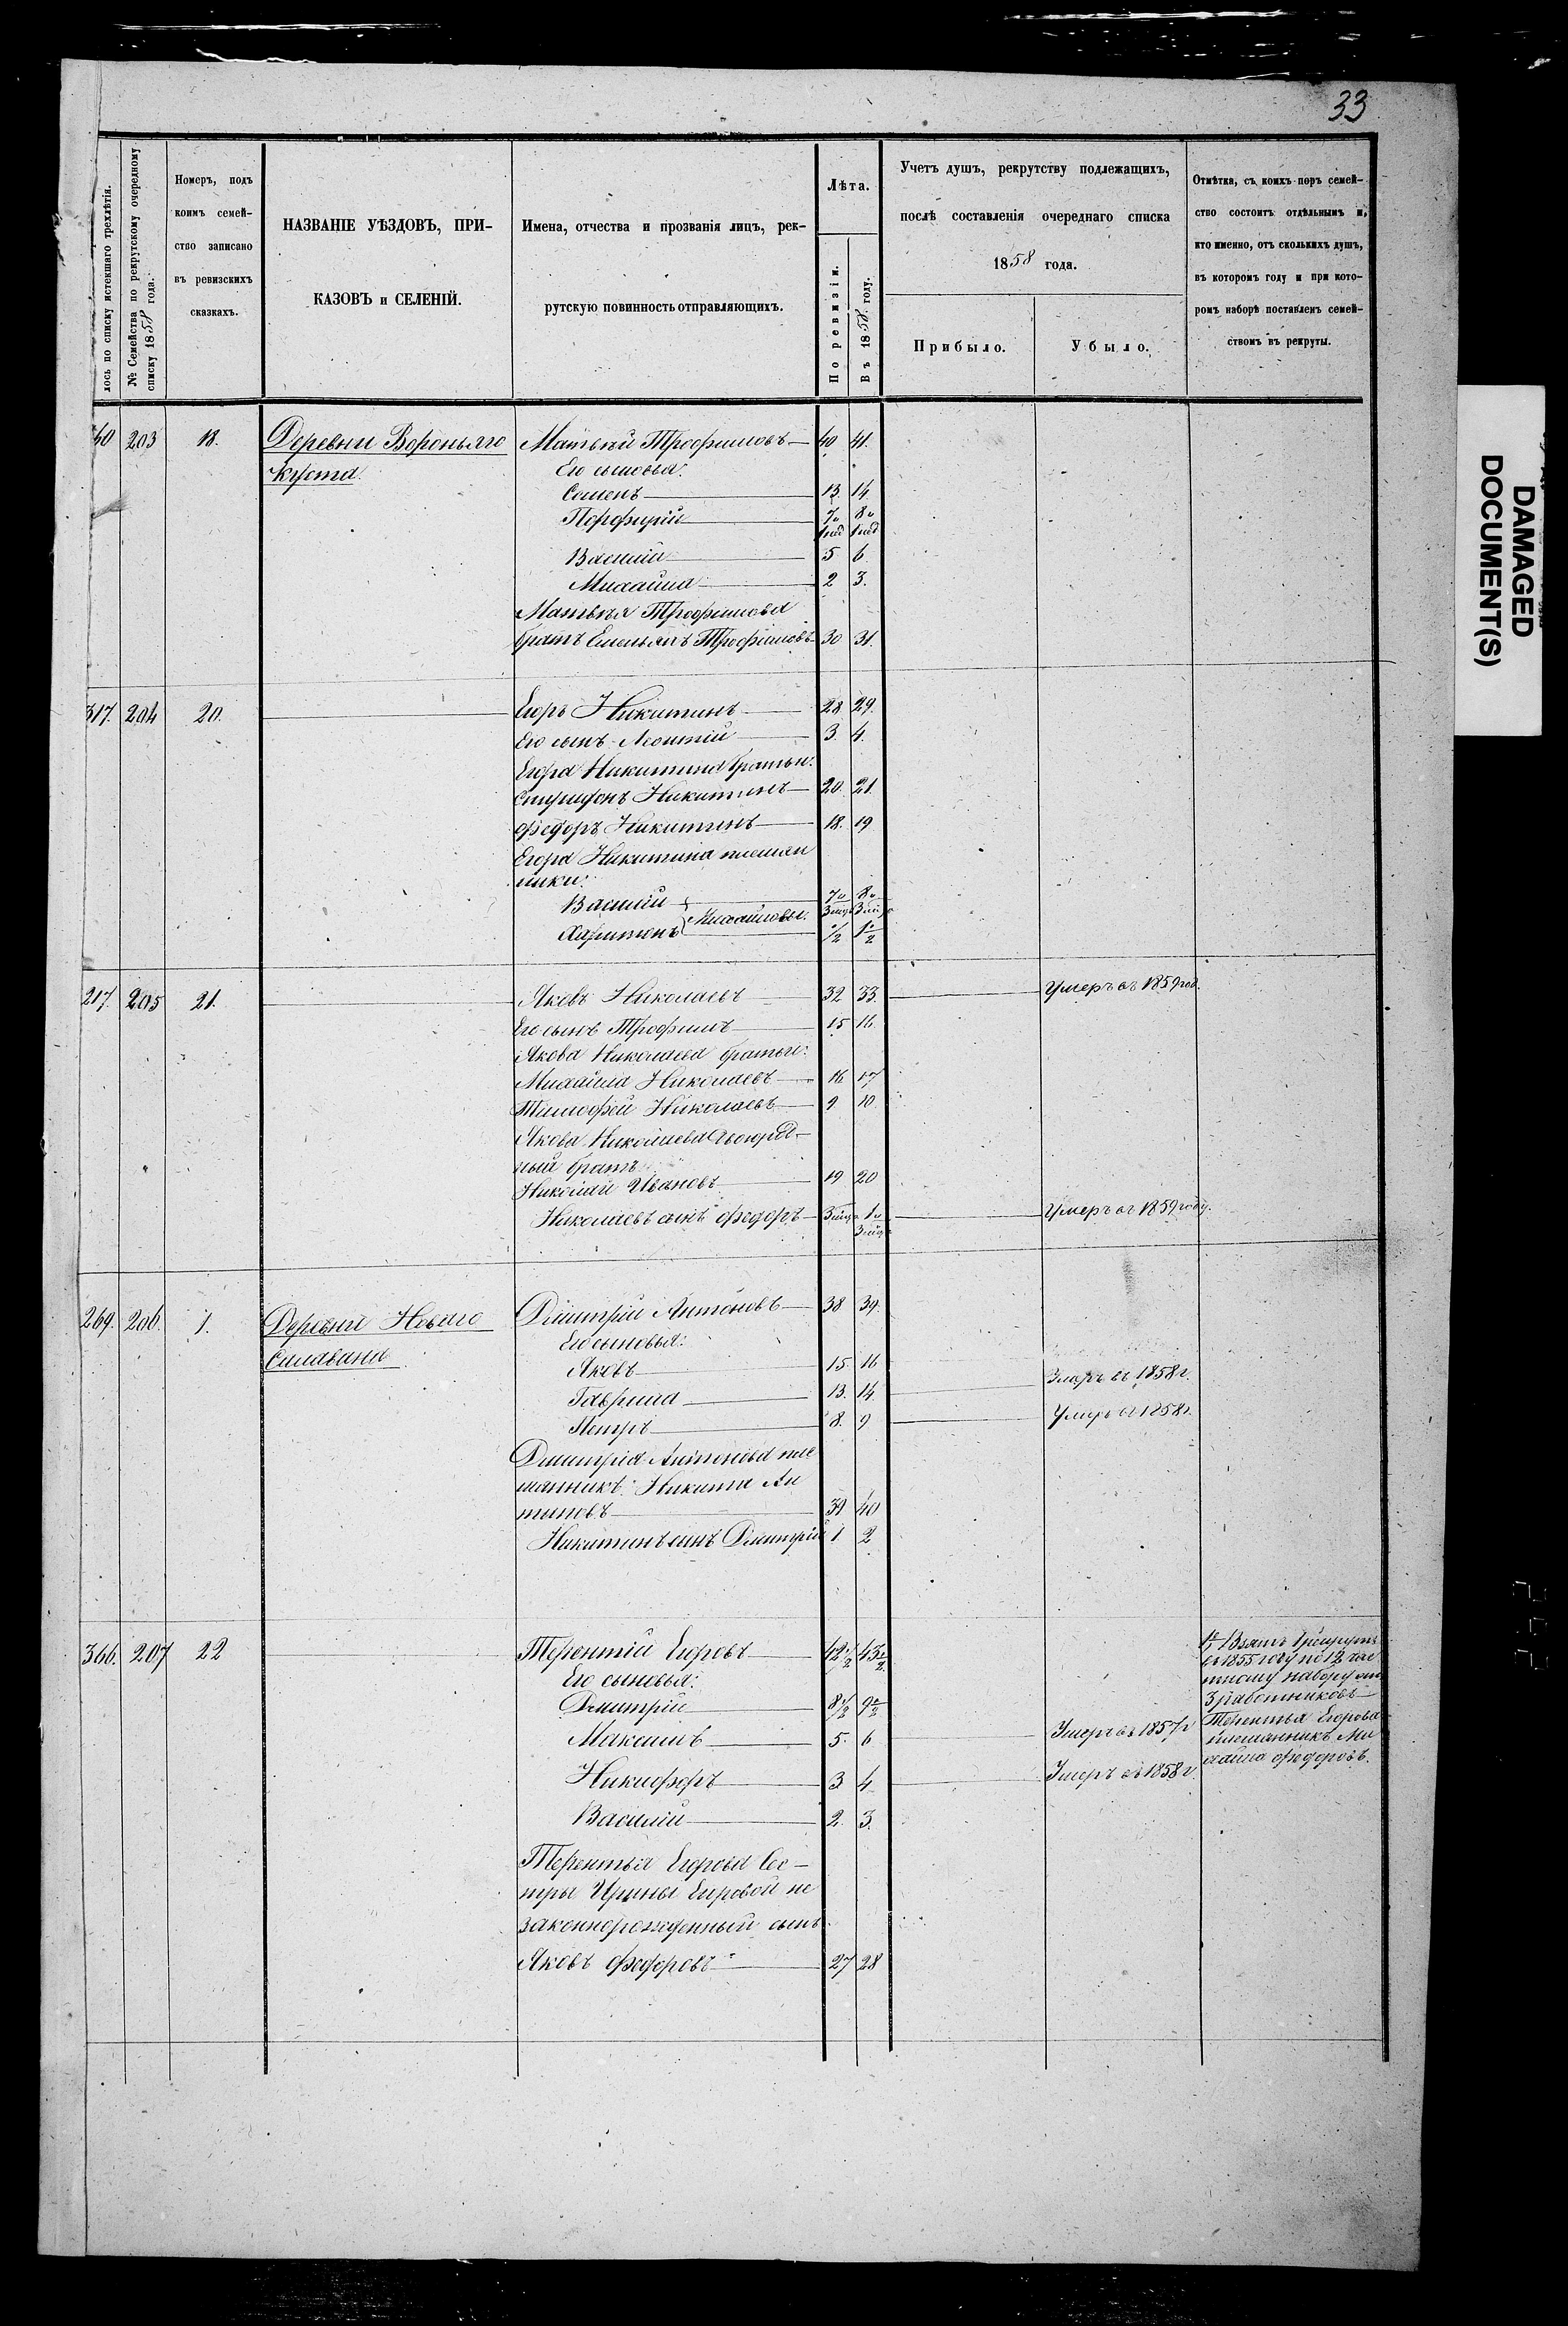 33
лось по списку истекшаго трехлѣтія.
№ Семейства по рекрутскому очередному списку 1858 года.
Номеръ, подъ
коимъ семей-
ство записано
въ ревизскихъ
сказкахъ.
НАЗВАНІЕ УѢЗДОВЪ, ПРИ-
КАЗОВЪ и СЕЛЕНІЙ.
Имена, отчества и прозванія лицъ, рек-
рутскую повинность отправляющихъ.
Лѣта.
По ревизіи.
Въ 1858 году.
Учетъ душъ, рекрутству подлежащихъ,
послѣ составленія очереднаго списка
1858 года.
Прибыло.
Убыло.
Отмѣтка, съ коихъ поръ семей-
ство состоитъ отдѣльнымъ и,
кто именно, отъ сколькихъ душъ,
въ которомъ году и при кото-
ромъ наборѣ поставленъ семей-
ствомъ въ рекруты.
DAMAGED
DOCUMENT(S)
40 203 18. Деревни Вороньяго Матвѣй Трофимовъ 40 41.
Куста. Его сыновья:
Семенъ 13. 14
Порфирій 7 8
Василій 5 6
Михайла 2 3.
Матвѣя Трофимова
братъ Емельянъ Трофимовъ 30 31.
317. 204 20. Егоръ Никитинъ 28 29.
Его сынъ Леонтій 3. 4.
Егора Никитина братья:
Спиридонъ Никитинъ 20. 21.
Федоръ Никитинъ 18. 19
Егора Никитина племян
ники:
Василій 7 8
Михайловы.
Харитонъ 1/2 1 1/2
217. 205 21. Яковъ Николаевъ 32 33. Умеръ въ 1859 год.
Его сынъ Трофимъ 15 16
Якова Николаева братья:
Михайла Николаевъ 16 17
Тимофей Николаевъ 9 10
Якова Николаева двоюрод-
ный братъ
Николай Ивановъ 19 20
Николаевъ сынъ Федоръ 3 мѣс. 1 Умеръ въ 1859 году.
3 мѣс.
269. 206. 1. Деревни Новаго Дмитрій Антоновъ 38 39.
Силавана Его сыновья:
Яковъ 15. 16
Гаврила 13. 14 Умеръ въ 1858 г.
Петръ 8. 9 Умеръ въ 1858 г.
Дмитрія Антонова пле
мянникъ Никита Ан
типовъ 39 40
Никитинъ сынъ Дмитрій 1 2
366. 207 22 Терентій Егоровъ 42 1/2 43 1/2
Его сыновья:
Дмитрій 8 1/2 9 1/2
Максимъ 5. 6 Умеръ въ 1857 г
Никифоръ 3 4 Умеръ въ 1858 г.
Василій 2. 3.
Терентья Егорова Сес-
тры Ирины Егоровой не
законнорожденный сынъ
Яковъ Федоровъ 27 28
Взятъ в рекруты
въ 1855 году по 12 час
тному набору отъ
3 работниковъ
Терентья Егорова
племянникъ Ми
хайла Федоровъ.